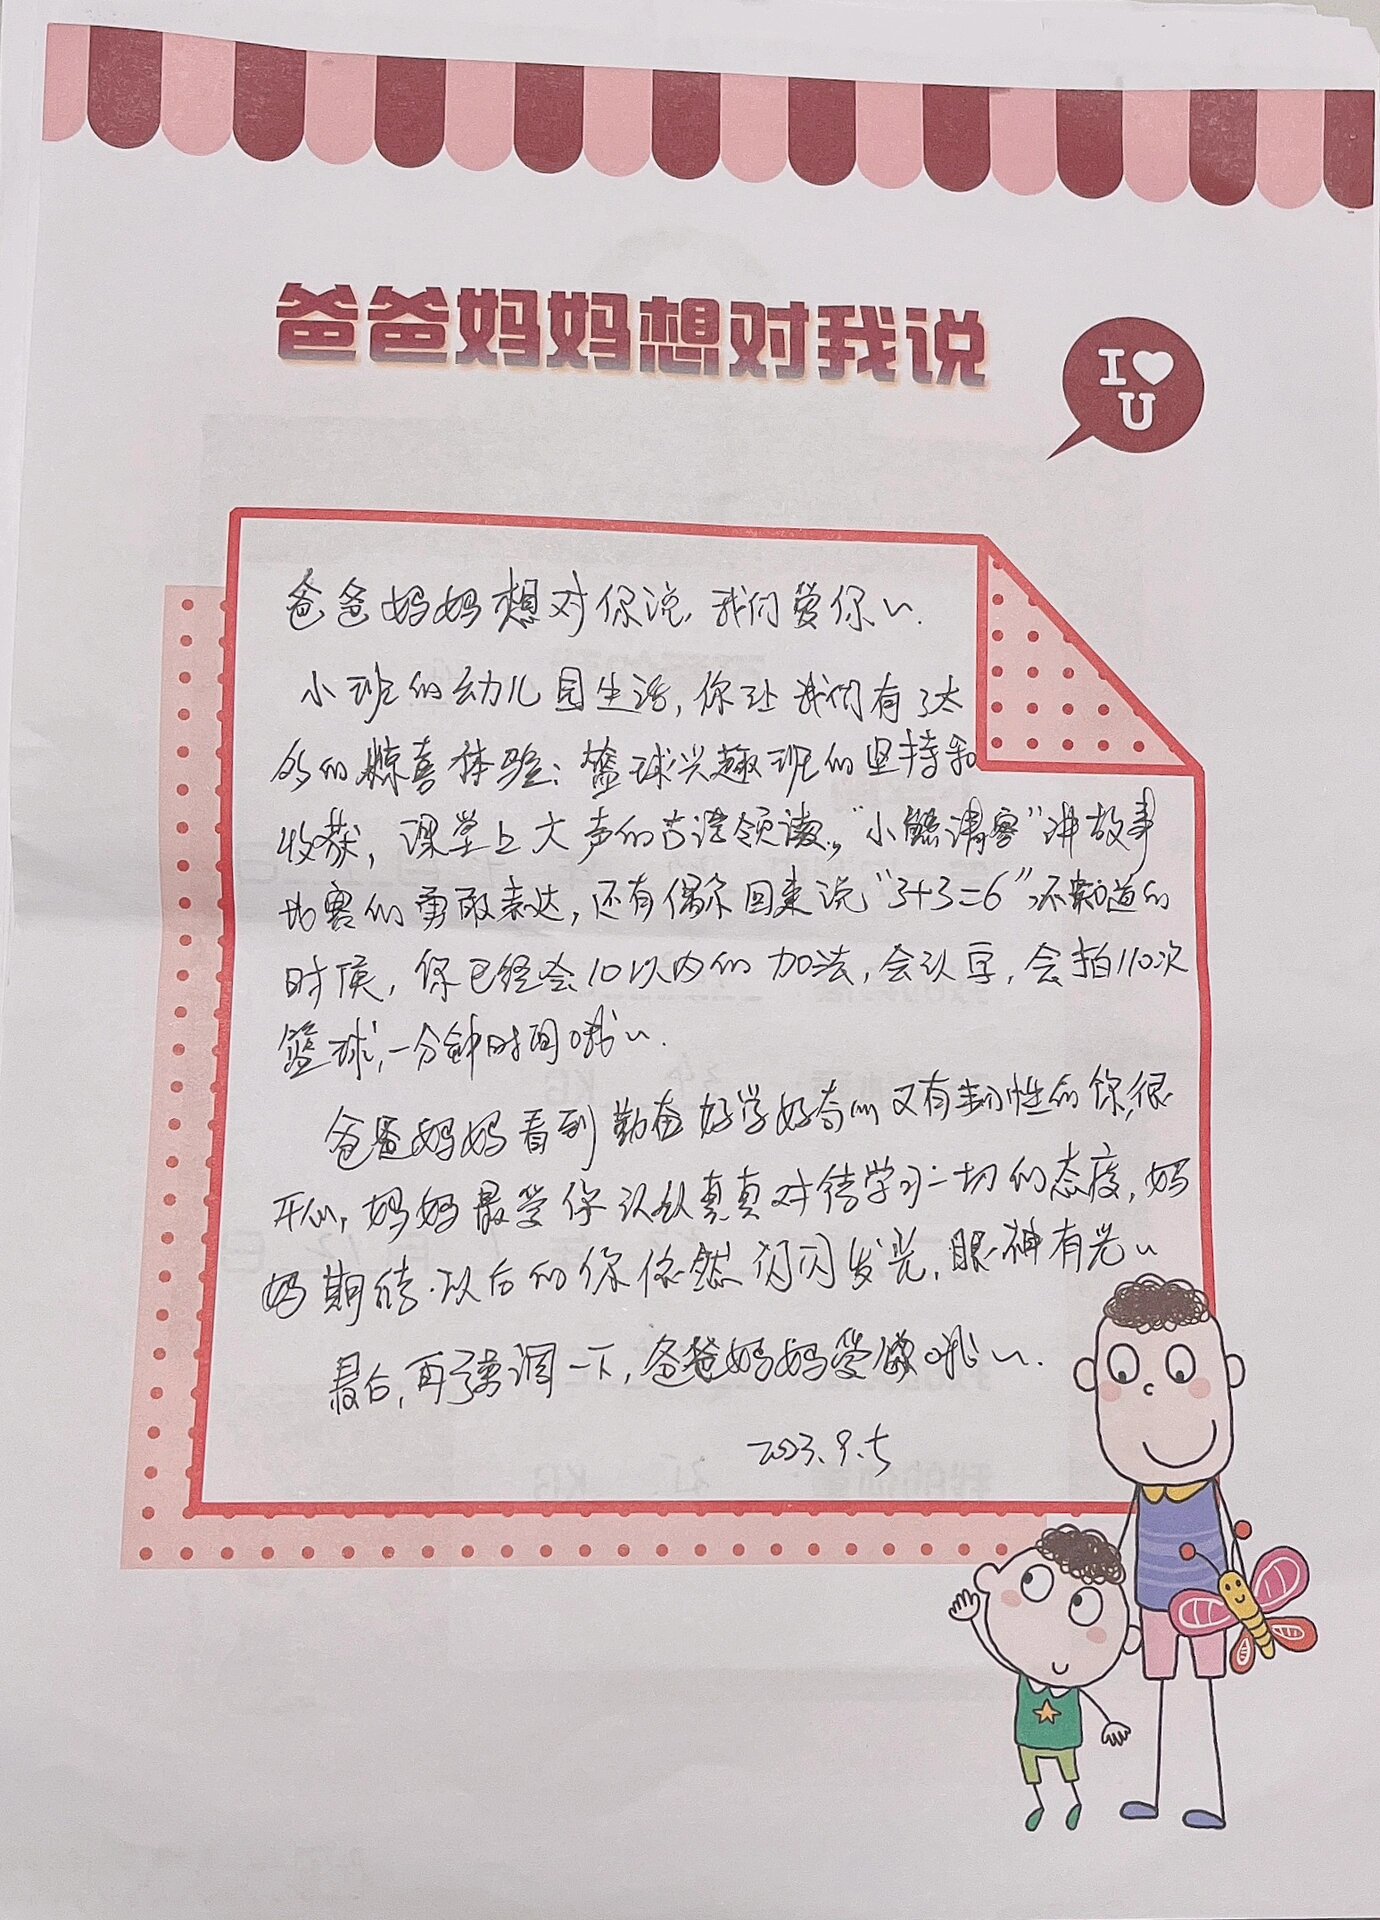 爸爸妈妈想对我说
I
U
爸爸妈妈想对你说,我们爱你~.
小班的幼儿园生活,你让我们有了太
多的惊喜体验:篮球兴趣班的坚持和
收获,课堂上大声的古诗领读,“小熊请客”讲故事
比赛的勇敢表达,还有偶尔回来说“3+3=6”,不知道的
时候,你已经会10以内的加法,会认字,会拍110次
篮球,一分钟时间哦~.
爸爸妈妈看到勤奋好学好奇心又有韧性的你,很
开心,妈妈最爱你认认真真对待学习一切的态度,妈
妈期待.以后的你依然闪闪发光,眼神有光~
最后,再强调一下,爸爸妈妈爱你哦~~.
2023.9.5